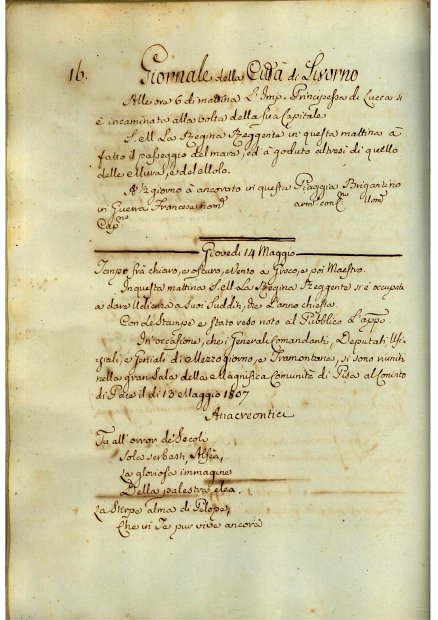 16. Giornale della Città di Livorno
Alle ore 6 di mattina L'Imp. Principessa di Lucca si
è incaminata alla volta della sua Capitale
S. M. La Regina Reggente in questa mattina à
fatto il passeggio del mare, ed à goduto altresì di quello
delle Mura, e del
A ½ giorno à ancorato in questa Piaggia Brigantino
in Guerra Francese nom.º arm. con C.ni Uom.
Cap.no
Giovedì 14 Maggio
Tempo frà chiaro, e oscuro, e Vento a Greco, e poi Maestro.
In questa mattina S. M. La Regina Reggente si è occupata
a dare Udienza a suoi Sudditi, che L'anno chiesta.
Con le Stampe è stato reso noto al Pubblico L'app.
In occasione, che i Generali Comandanti, Deputati, Ufi-
ziali, e Geniali di Mezzogiorno, e Tramontana, si sono riuniti
nella gran Sala della Magnifica Comunità di Pisa al Concato
di Pace il dì 13 Maggio 1807
Anacreontici
Tu all'orror de' Secoli
Sola serbasti, Alfea,
La gloriosa immagine
Della palestra elea.
La Stirpe alma di Pelope,
Che in Te pur vive ancora